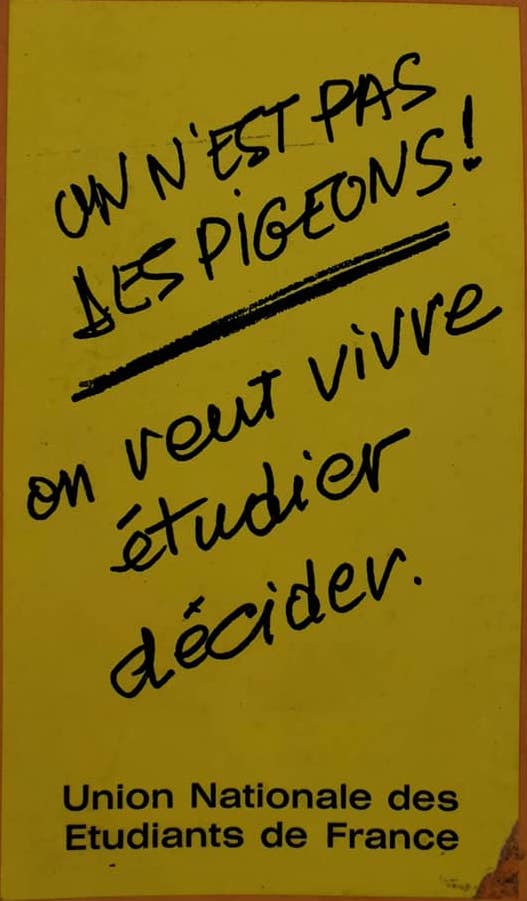 ON N'EST PAS
DES PIGEONS!
on veut vivre
étudier
décider.
Union Nationale des
Etudiants de France